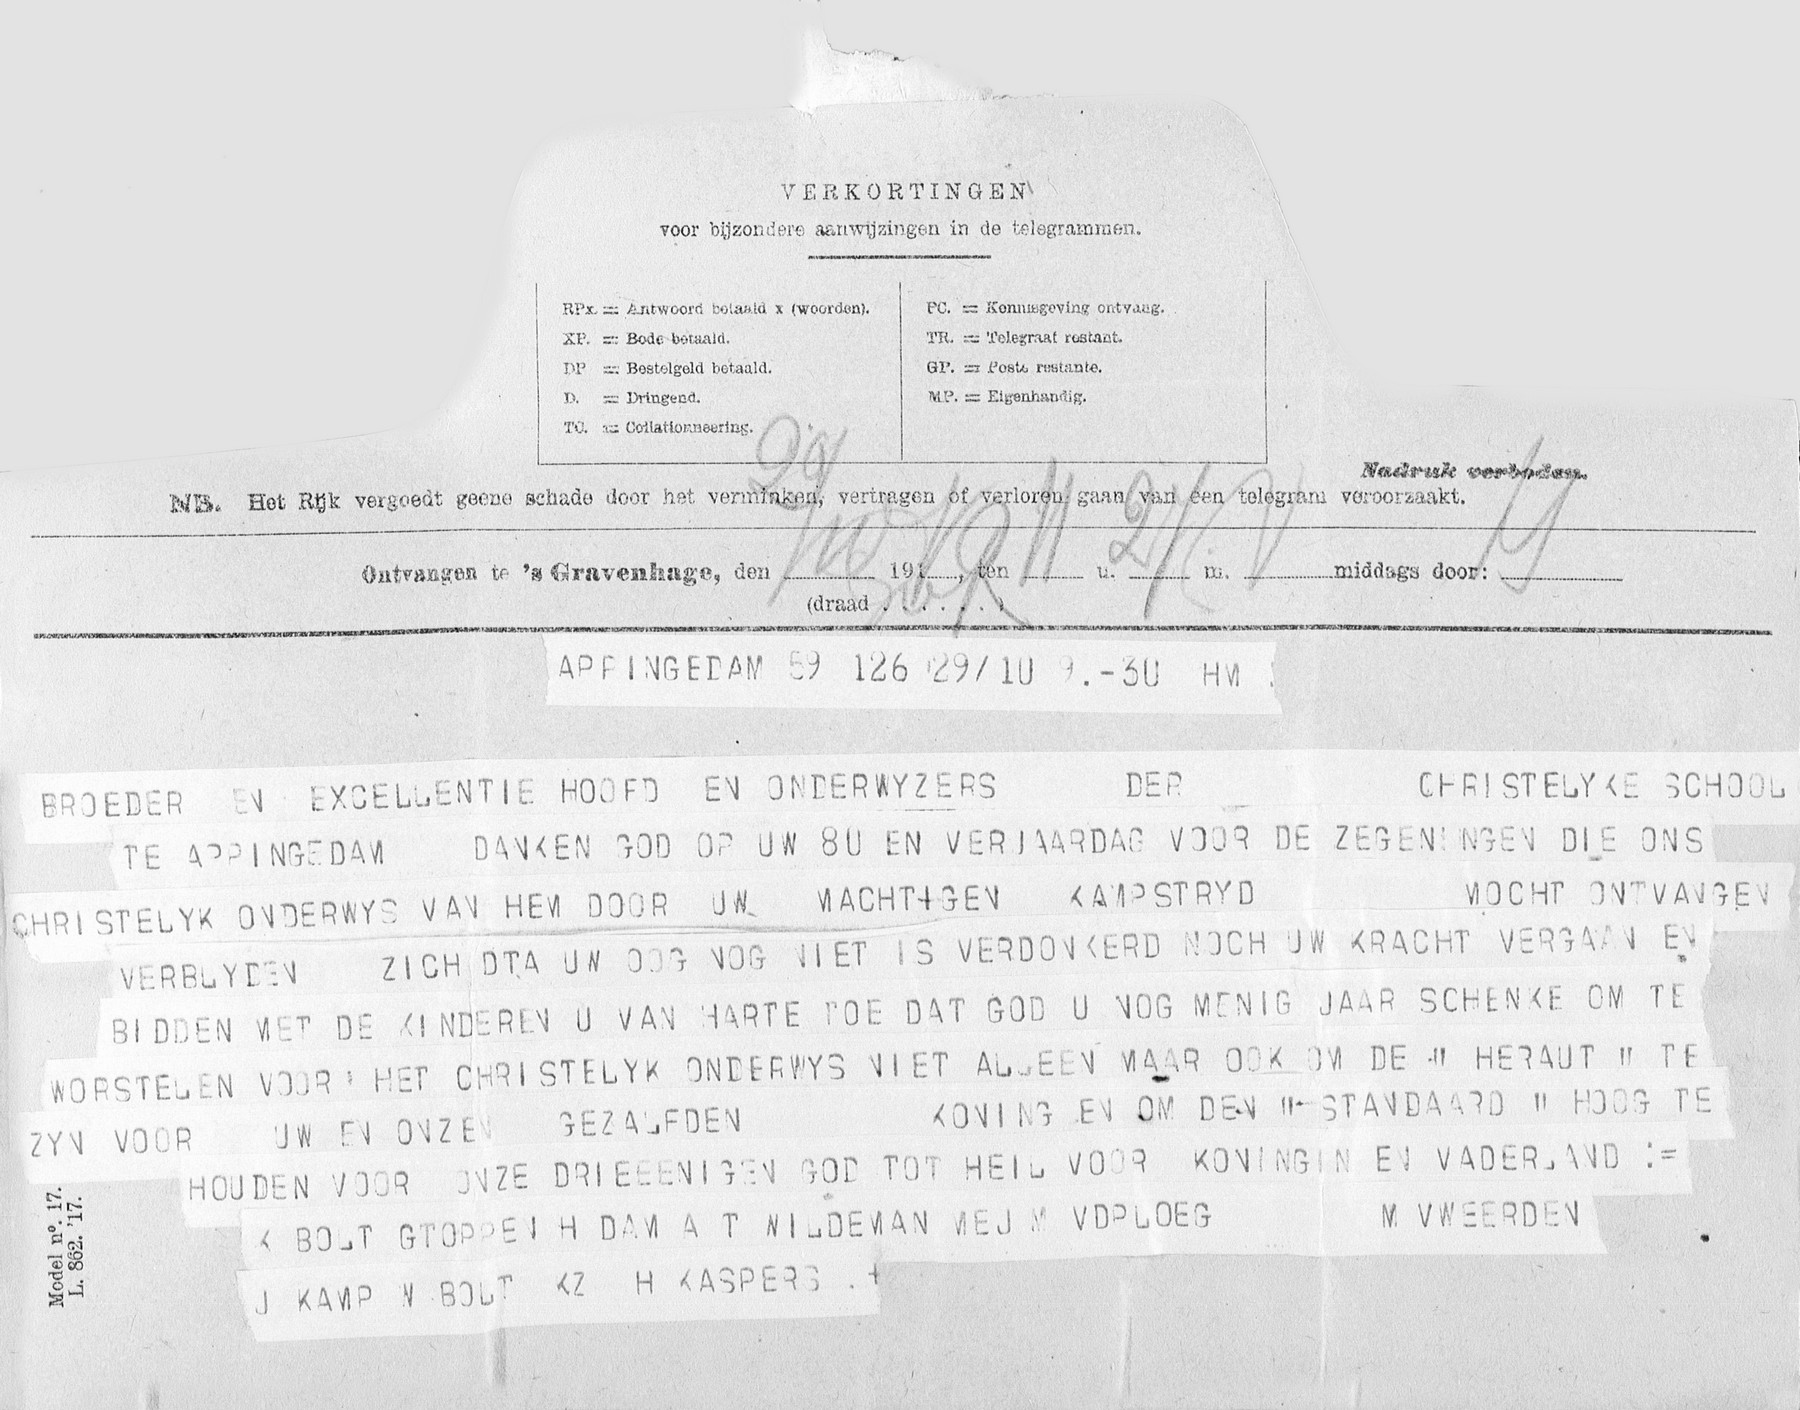 VERKORTINGEN
voor bijzondere aanwijzingen in de telegrammen.
RPx. = Antwoord betaald x (woorden).
XP. = Bode betaald.
DP = Bestelgeld betaald.
D. = Dringend.
TC. = Collationneering.
PC. = Kennisgeving ontvang.
TR. = Telegraaf restant.
GP. = Poste restante.
MP. = Eigenhandig.
Nadruk verboden.
NB. Het Rijk vergoedt geene schade door het verminken, vertragen of verloren gaan van een telegram veroorzaakt.
Ontvangen te 's Gravenhage, den 191 , ten u. m. middags door:
(draad . . . . . . . )
APPINGEDAM 59 126 29/10 9.-30 HM
BROEDER EN EXCELLENTIE HOOFD EN ONDERWYZERS DER CHRISTELYKE SCHOOL
TE APPINGEDAM DANKEN GOD OP UW 80 EN VERJAARDAG VOOR DE ZEGENINGEN DIE ONS
CHRISTELYK ONDERWYS VAN HEM DOOR UW MACHTIGEN KAMPSTRYD MOCHT ONTVANGEN
VERBLYDEN ZICH DTA UW OOG NOG NIET IS VERDONKERD NOCH UW KRACHT VERGAAN EN
BIDDEN MET DE KINDEREN U VAN HARTE TOE DAT GOD U NOG MENIG JAAR SCHENKE OM TE
WORSTELEN VOOR HET CHRISTELYK ONDERWYS NIET ALLEEN MAAR OOK OM DE " HERAUT " TE
ZYN VOOR UW EN ONZEN GEZALFDEN KONING EN OM DEN " STANDAARD " HOOG TE
HOUDEN VOOR ONZE DRIEEENIGEN GOD TOT HEIL VOOR KONINGIN EN VADERLAND :=
K BOLT GTOPPEN H DAM A T WILDEMAN MEJ M VDPLOEG M VWEERDEN
J KAMP W BOLT KZ H KASPERS . +
Model nº. 17.
L. 862. '17.